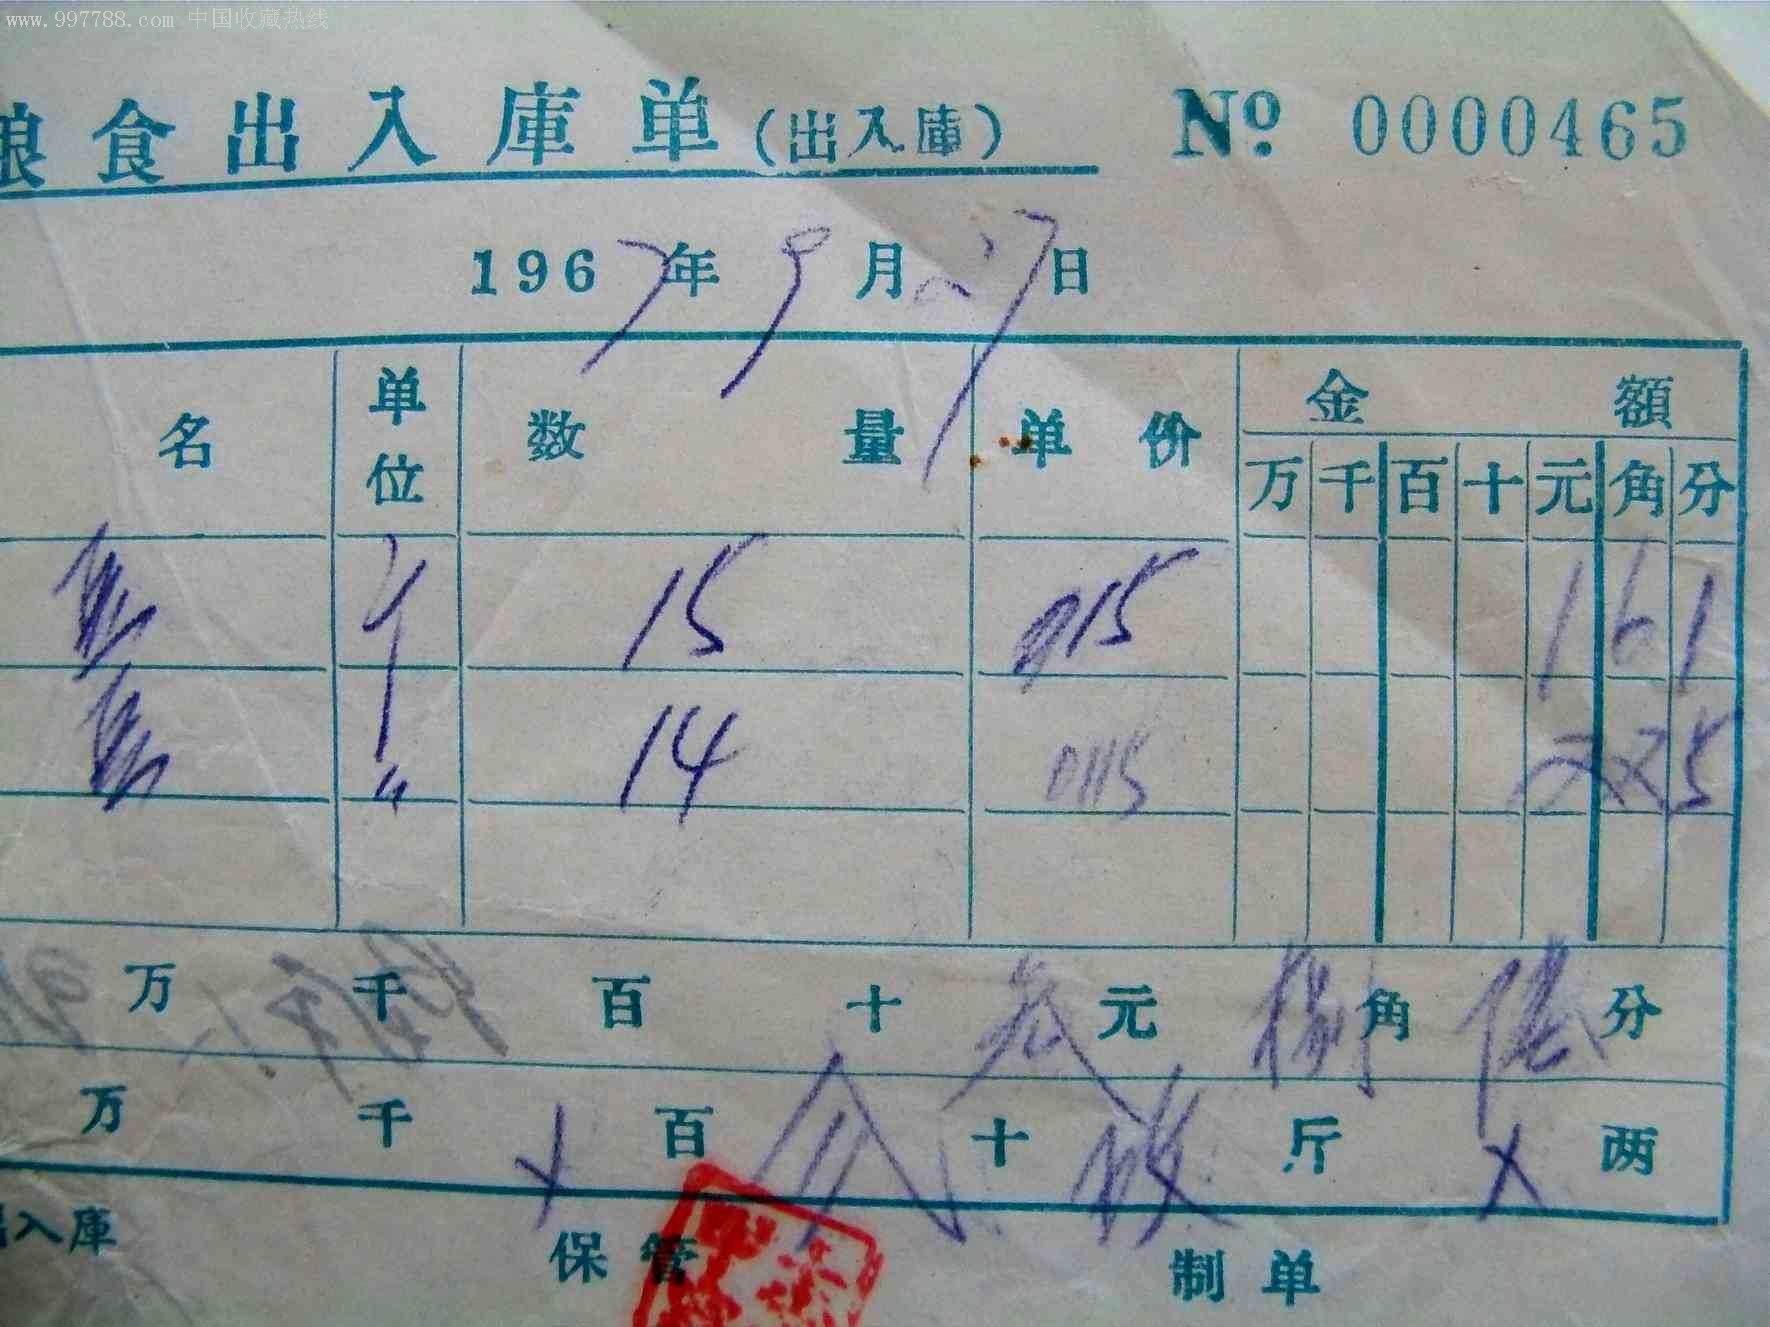 www.997788.com 中国收藏热线
粮食出入庫单(出入庫) Nº 0000465
1967年9月27日
名 单位 数量 单价 金額
万 千 百 十 元 角 分
15 015 1 6 1
〃 14 0115 2 2 5
万 千 百 十 叁 元 捌 角 陆 分
万 千 × 百 十 斤 × 两
出入庫 保管 制单